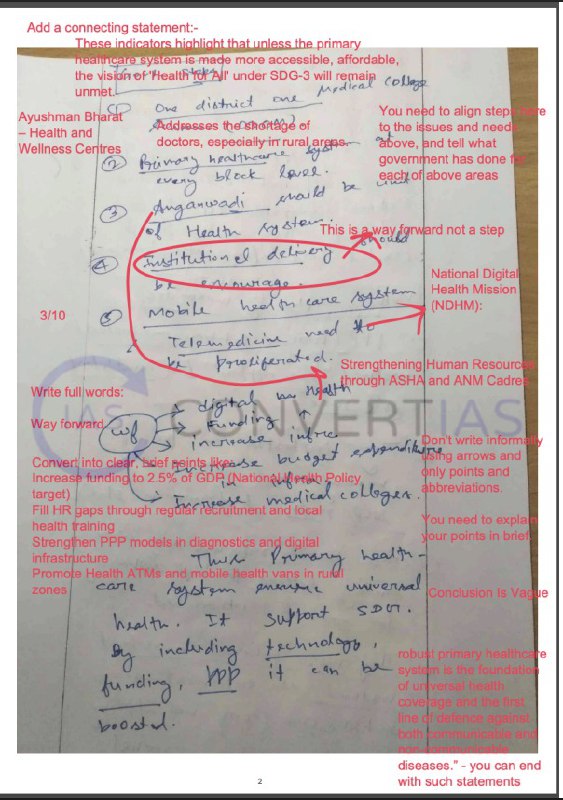 Add a connecting statement:-
These indicators highlight that unless the primary
healthcare system is made more accessible, affordable,
the vision of 'Health for All' under SDG-3 will remain
unmet.
Medical college
① One district one
Ayushman Bharat
– Health and
Wellness Centres
Addresses the shortage of
doctors, especially in rural areas.
You need to align steps here
to the issues and needs
above, and tell what
government has done for
each of above areas
② Primary healthcare system at
every block level.
③ Anganwadi should be unit
of Health system.
This is a way forward not a step
④ Institutional delivery should
be encourage.
National Digital
Health Mission
(NDHM):
3/10
⑤ Mobile health care system
Telemedicine need to
be proliferated.
Strengthening Human Resources
through ASHA and ANM Cadres
Write full words:
Way forward
wf
digital in Health
Funding ↑
increase infra
Increase budget expenditure
in infra
Increase medical colleges.
CONVERTIAS
IAS
Don't write informally
using arrows and
only points and
abbreviations.
You need to explain
your points in brief
Convert into clear, brief points like:
Increase funding to 2.5% of GDP (National Health Policy
target)
Fill HR gaps through regular recruitment and local
health training
Strengthen PPP models in diagnostics and digital
infrastructure
Promote Health ATMs and mobile health vans in rural
zones
Thus Primary health-
care system ensure universal
health. It support SDG.
By including technology,
funding, PPP it can be
boosted.
Conclusion Is Vague
robust primary healthcare
system is the foundation
of universal health
coverage and the first
line of defence against
both communicable and
non-communicable
diseases." - you can end
with such statements
2